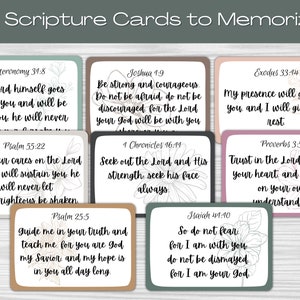 Scripture Cards to Memoriz
teronomy 31:8
rd himself goes
you and will be
you; he will never
Joshua 1:9
Be strong and courageous.
Do not be afraid; do not be
discouraged, for the Lord
your God will be with you
Exodus 33:14
My presence will g
you, and I will giv
rest.
Psalm 55:22
r cares on the Lord
will sustain you; he
will never let
righteous be shaken.
1 Chronicles 16:11
Seek out the Lord and His
strength; seek his face
always.
Proverbs 3:5
Trust in the Lord
your heart, and
on your ow
understand
Psalm 25:5
Guide me in your truth and
teach me, for you are God
my Savior, and my hope is
in you all day long.
Isaiah 41:10
So do not fear,
for I am with you;
do not be dismayed,
for I am your God.